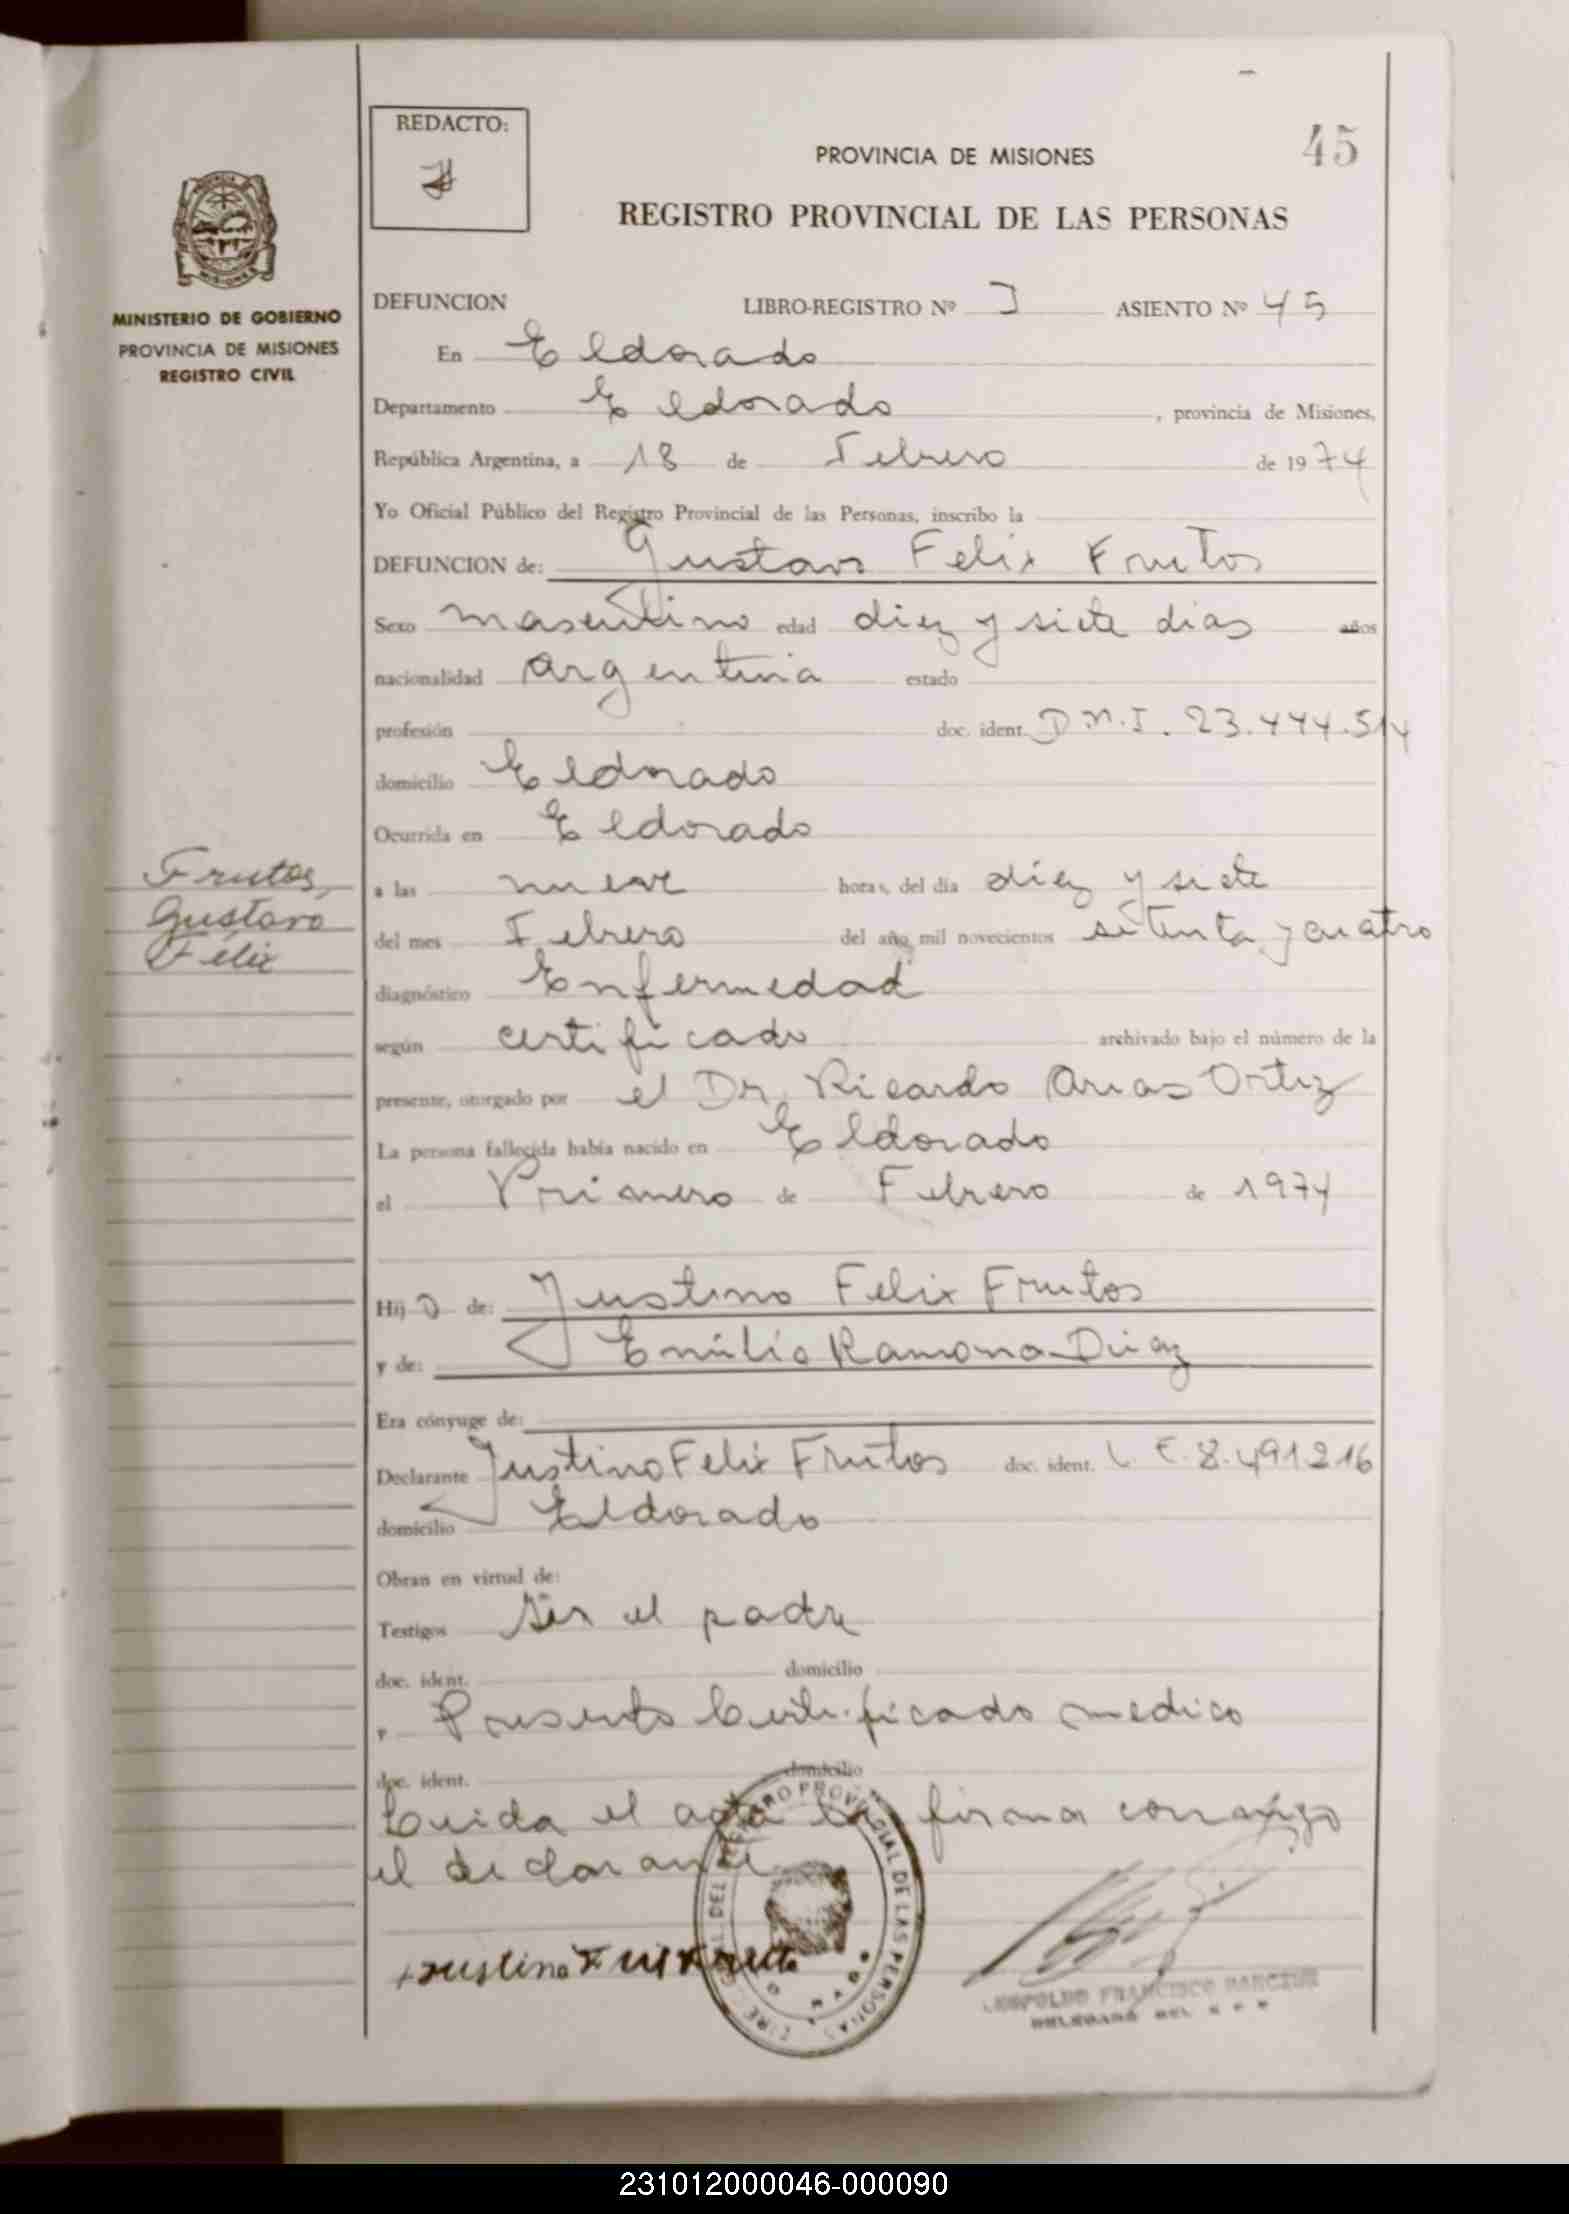 45
REDACTO:
PROVINCIA DE MISIONES
REGISTRO PROVINCIAL DE LAS PERSONAS
MISIONES
MINISTERIO DE GOBIERNO
PROVINCIA DE MISIONES
REGISTRO CIVIL
DEFUNCION LIBRO-REGISTRO Nº I ASIENTO Nº 45
En Eldorado
Departamento Eldorado, provincia de Misiones,
República Argentina, a 18 de Febrero de 1974
Yo Oficial Público del Registro Provincial de las Personas, inscribo la
DEFUNCION de: Gustavo Felix Frutos
Sexo masculino edad diez y siete dias años
nacionalidad argentina estado
profesión doc. ident. D.N.I. 23.444.514
domicilio Eldorado
Ocurrida en Eldorado
Frutos,
Gustavo
Félix
a las nueve horas, del día diez y siete
del mes Febrero del año mil novecientos setenta y cuatro
diagnóstico Enfermedad
según certificado archivado bajo el número de la
presente, otorgado por el Dr. Ricardo Arias Ortiz
La persona fallecida había nacido en Eldorado
el Primero de Febrero de 1974
Hijo de: Justino Felix Frutos
y de: Emilia Ramona Diaz
Era cónyuge de:
Declarante Justino Felix Frutos doc. ident. L.E. 8.491.216
domicilio Eldorado
Obran en virtud de:
Testigos ser el padre
doc. ident. domicilio
y Presento Certificado medico
doc. ident. domicilio
Leida el acta la firma conmigo
el declarante.
Justino Felix Frutos
DEL REGISTRO PROVINCIAL DE LAS PERSONAS
LEOPOLDO FRANCISCO
DELEGADO DEL
231012000046-000090